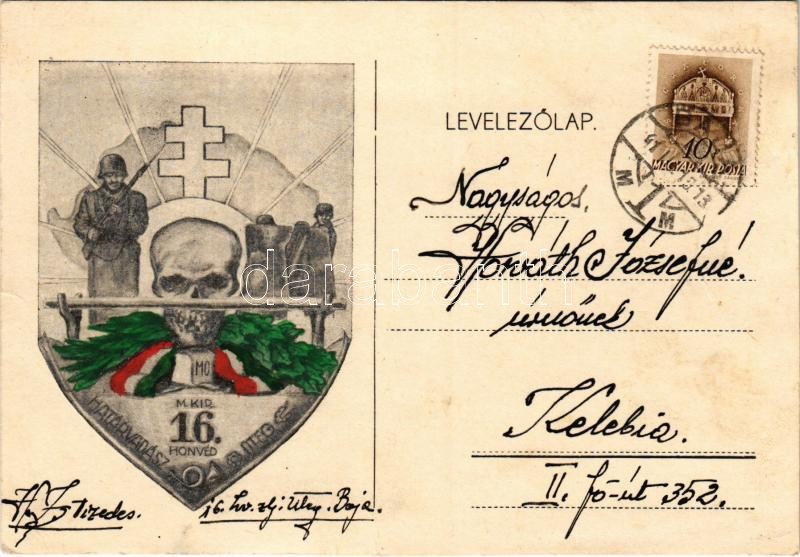 LEVELEZŐLAP.
10
MAGYAR KIR. POSTA
Nagyságos,
Horváth Józsefné.
úrnőnek
Kelebia.
II. fő-út 352.
MO
M. KIR.
16.
HONVÉD
HATÁRVADÁSZ
ÜTEG
tizedes.
16. hv. zlj. üteg. Baja.
darabanth